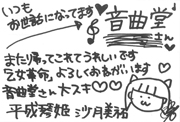 いつも
お世話になってます♥
音曲堂さん
また帰ってこれてうれしいです
乙女革命、よろしくおねがいします
音曲堂さん大スキ♡♡
平成琴姫 沙月美祐